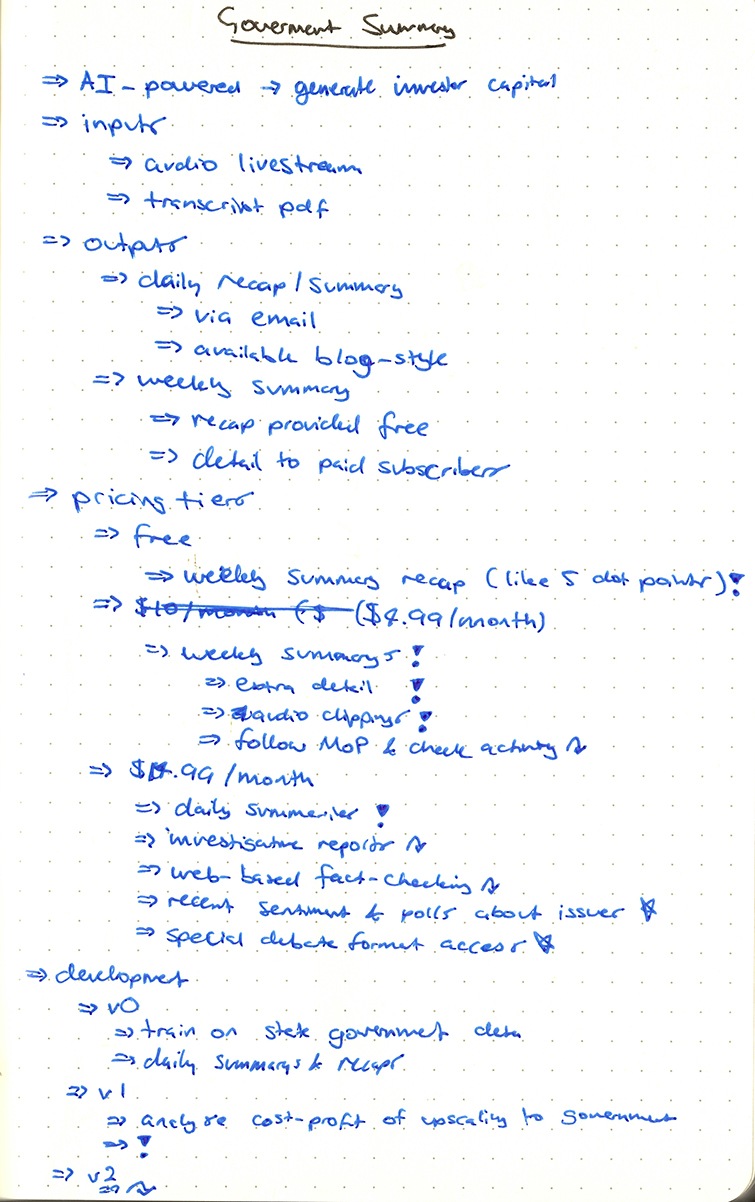 Goverment Summary
⇒ AI-powered → generate investor capital
⇒ inputs
⇒ audio livestream
⇒ transcript pdf
⇒ outputs
⇒ daily recap / summary
⇒ via email
⇒ available blog-style
⇒ weekly summary
⇒ recap provided free
⇒ detail to paid subscribers
⇒ pricing tiers
⇒ free
⇒ weekly summary recap (like 5 dot points) !
⇒ $10/month ($ ($4.99/month)
⇒ weekly summarys !
⇒ extra detail !
⇒ audio clippings !
⇒ follow MoP & check activity ~
⇒ $14.99/month
⇒ daily summeries !
⇒ investigative reports ~
⇒ web-based fact-checking ~
⇒ recent sentiment & polls about issues ☆
⇒ special debate format access ☆
⇒ development
⇒ v0
⇒ train on state government data
⇒ daily summarys & recaps
⇒ v1
⇒ analyse cost-profit of upscaling to government
⇒ !
⇒ v2
⇒ ~